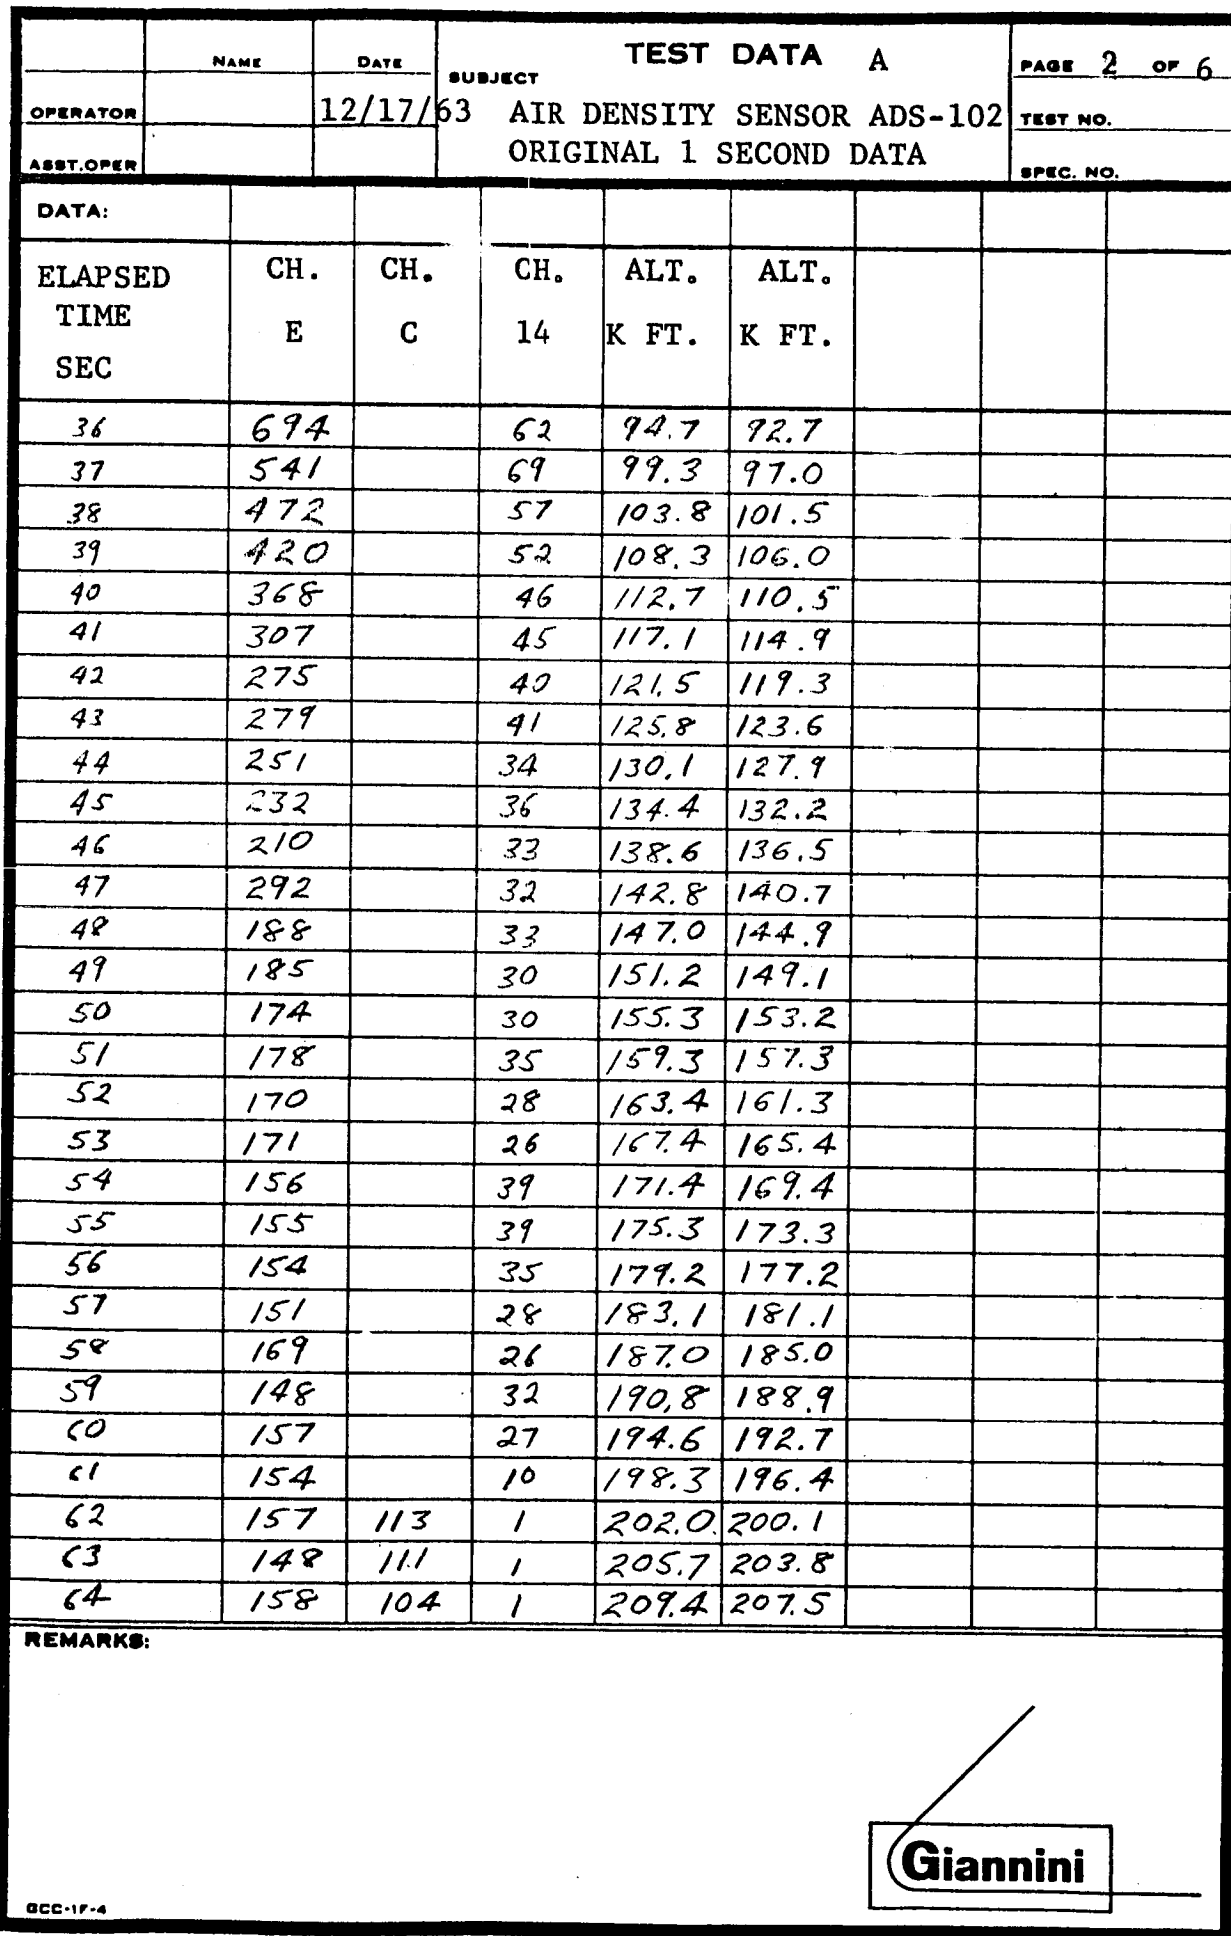 NAME DATE SUBJECT TEST DATA A PAGE 2 OF 6
OPERATOR 12/17/63 AIR DENSITY SENSOR ADS-102 TEST NO.
ASST.OPER ORIGINAL 1 SECOND DATA SPEC. NO.
DATA:
ELAPSED CH. CH. CH. ALT. ALT.
TIME E C 14 K FT. K FT.
SEC
36 694 62 94.7 92.7
37 541 69 99.3 97.0
38 472 57 103.8 101.5
39 420 52 108.3 106.0
40 368 46 112.7 110.5
41 307 45 117.1 114.9
42 275 40 121.5 119.3
43 279 41 125.8 123.6
44 251 34 130.1 127.9
45 232 36 134.4 132.2
46 210 33 138.6 136.5
47 292 32 142.8 140.7
48 188 33 147.0 144.9
49 185 30 151.2 149.1
50 174 30 155.3 153.2
51 178 35 159.3 157.3
52 170 28 163.4 161.3
53 171 26 167.4 165.4
54 156 39 171.4 169.4
55 155 39 175.3 173.3
56 154 35 179.2 177.2
57 151 28 183.1 181.1
58 169 26 187.0 185.0
59 148 32 190.8 188.9
60 157 27 194.6 192.7
61 154 10 198.3 196.4
62 157 113 1 202.0 200.1
63 148 111 1 205.7 203.8
64 158 104 1 209.4 207.5
REMARKS:
Giannini
GCC-1F-4